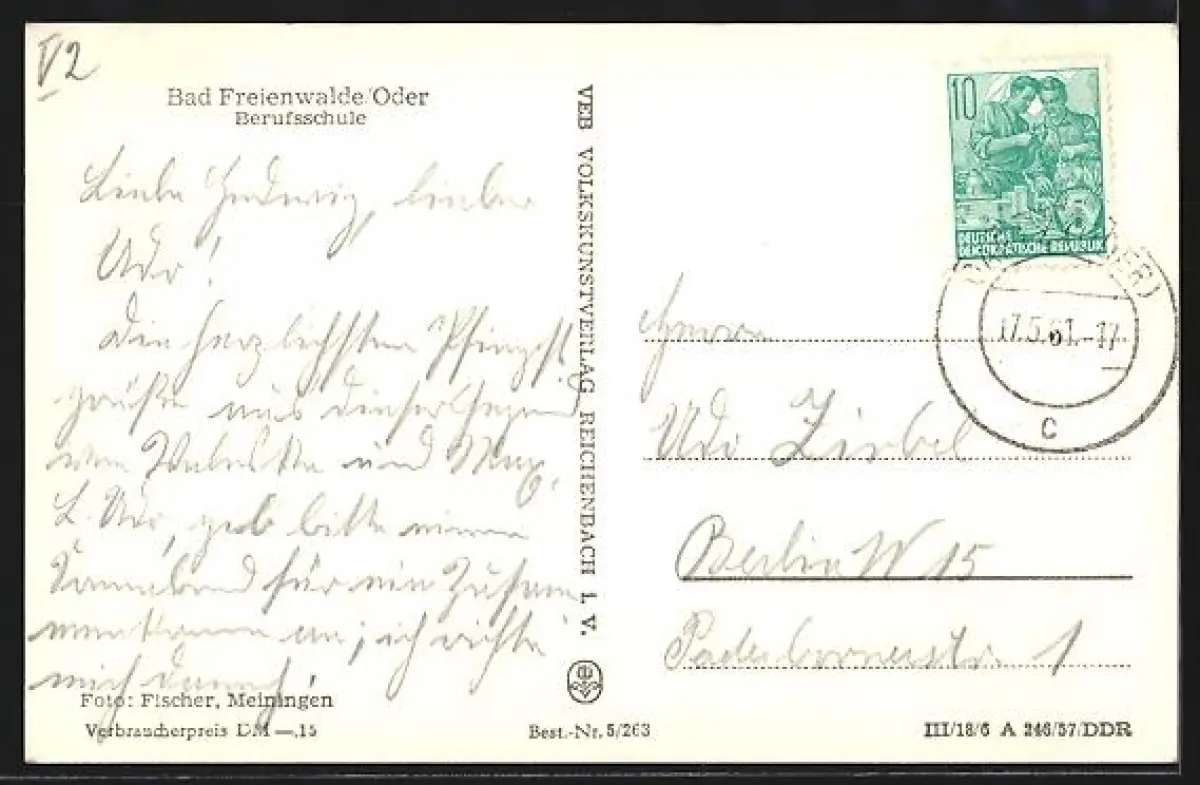 V2
Bad Freienwalde/Oder
Berufsschule
Liebe Hedwig, lieber
Udo!
Die herzlichsten Pfingst-
grüße aus dieser Gegend
von und Max.
L. Udo, gib bitte einen
Sonnabend für ein Zusam
menkommen an; ich richte
mich danach!
Foto: Fischer, Meiningen
Verbraucherpreis DM —,15
VEB VOLKSKUNSTVERLAG REICHENBACH I. V.
Best.-Nr. 5/263
10
DEUTSCHE
DEMOKRATISCHE REPUBLIK
17.5.61.-17
c
Herrn
Udo Ziebel
Berlin W 15
Paderbornerstr. 1
III/18/6 A 246/57/DDR